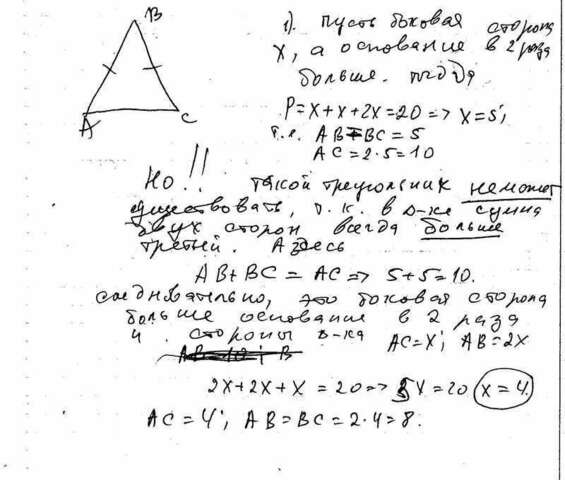 B
A
C
1). пусть боковая сторона
x, а основание в 2 раза
больше. тогда
P=x+x+2x=20=>x=5,
т.е. AB=BC=5
AC=2·5=10
Но!! такой треугольник не может
существовать, т.к. в Δ-ке сумма
двух сторон всегда больше
третьей. А здесь
AB+BC=AC=>5+5=10.
следовательно, это боковая сторона
больше основание в 2 раза
и стороны Δ-ка AC=x; AB=2x
2x+2x+x=20=>5x=20 x=4.
AC=4; AB=BC=2·4=8.